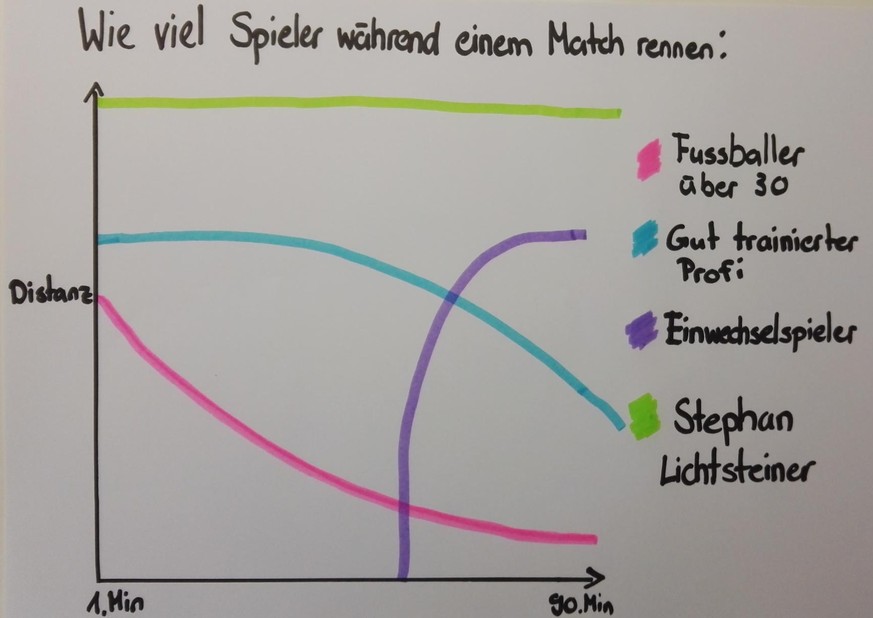 Wie viel Spieler während einem Match rennen:
Fussballer
über 30
Gut trainierter
Profi
Distanz
Einwechselspieler
Stephan
Lichtsteiner
1.Min
90.Min